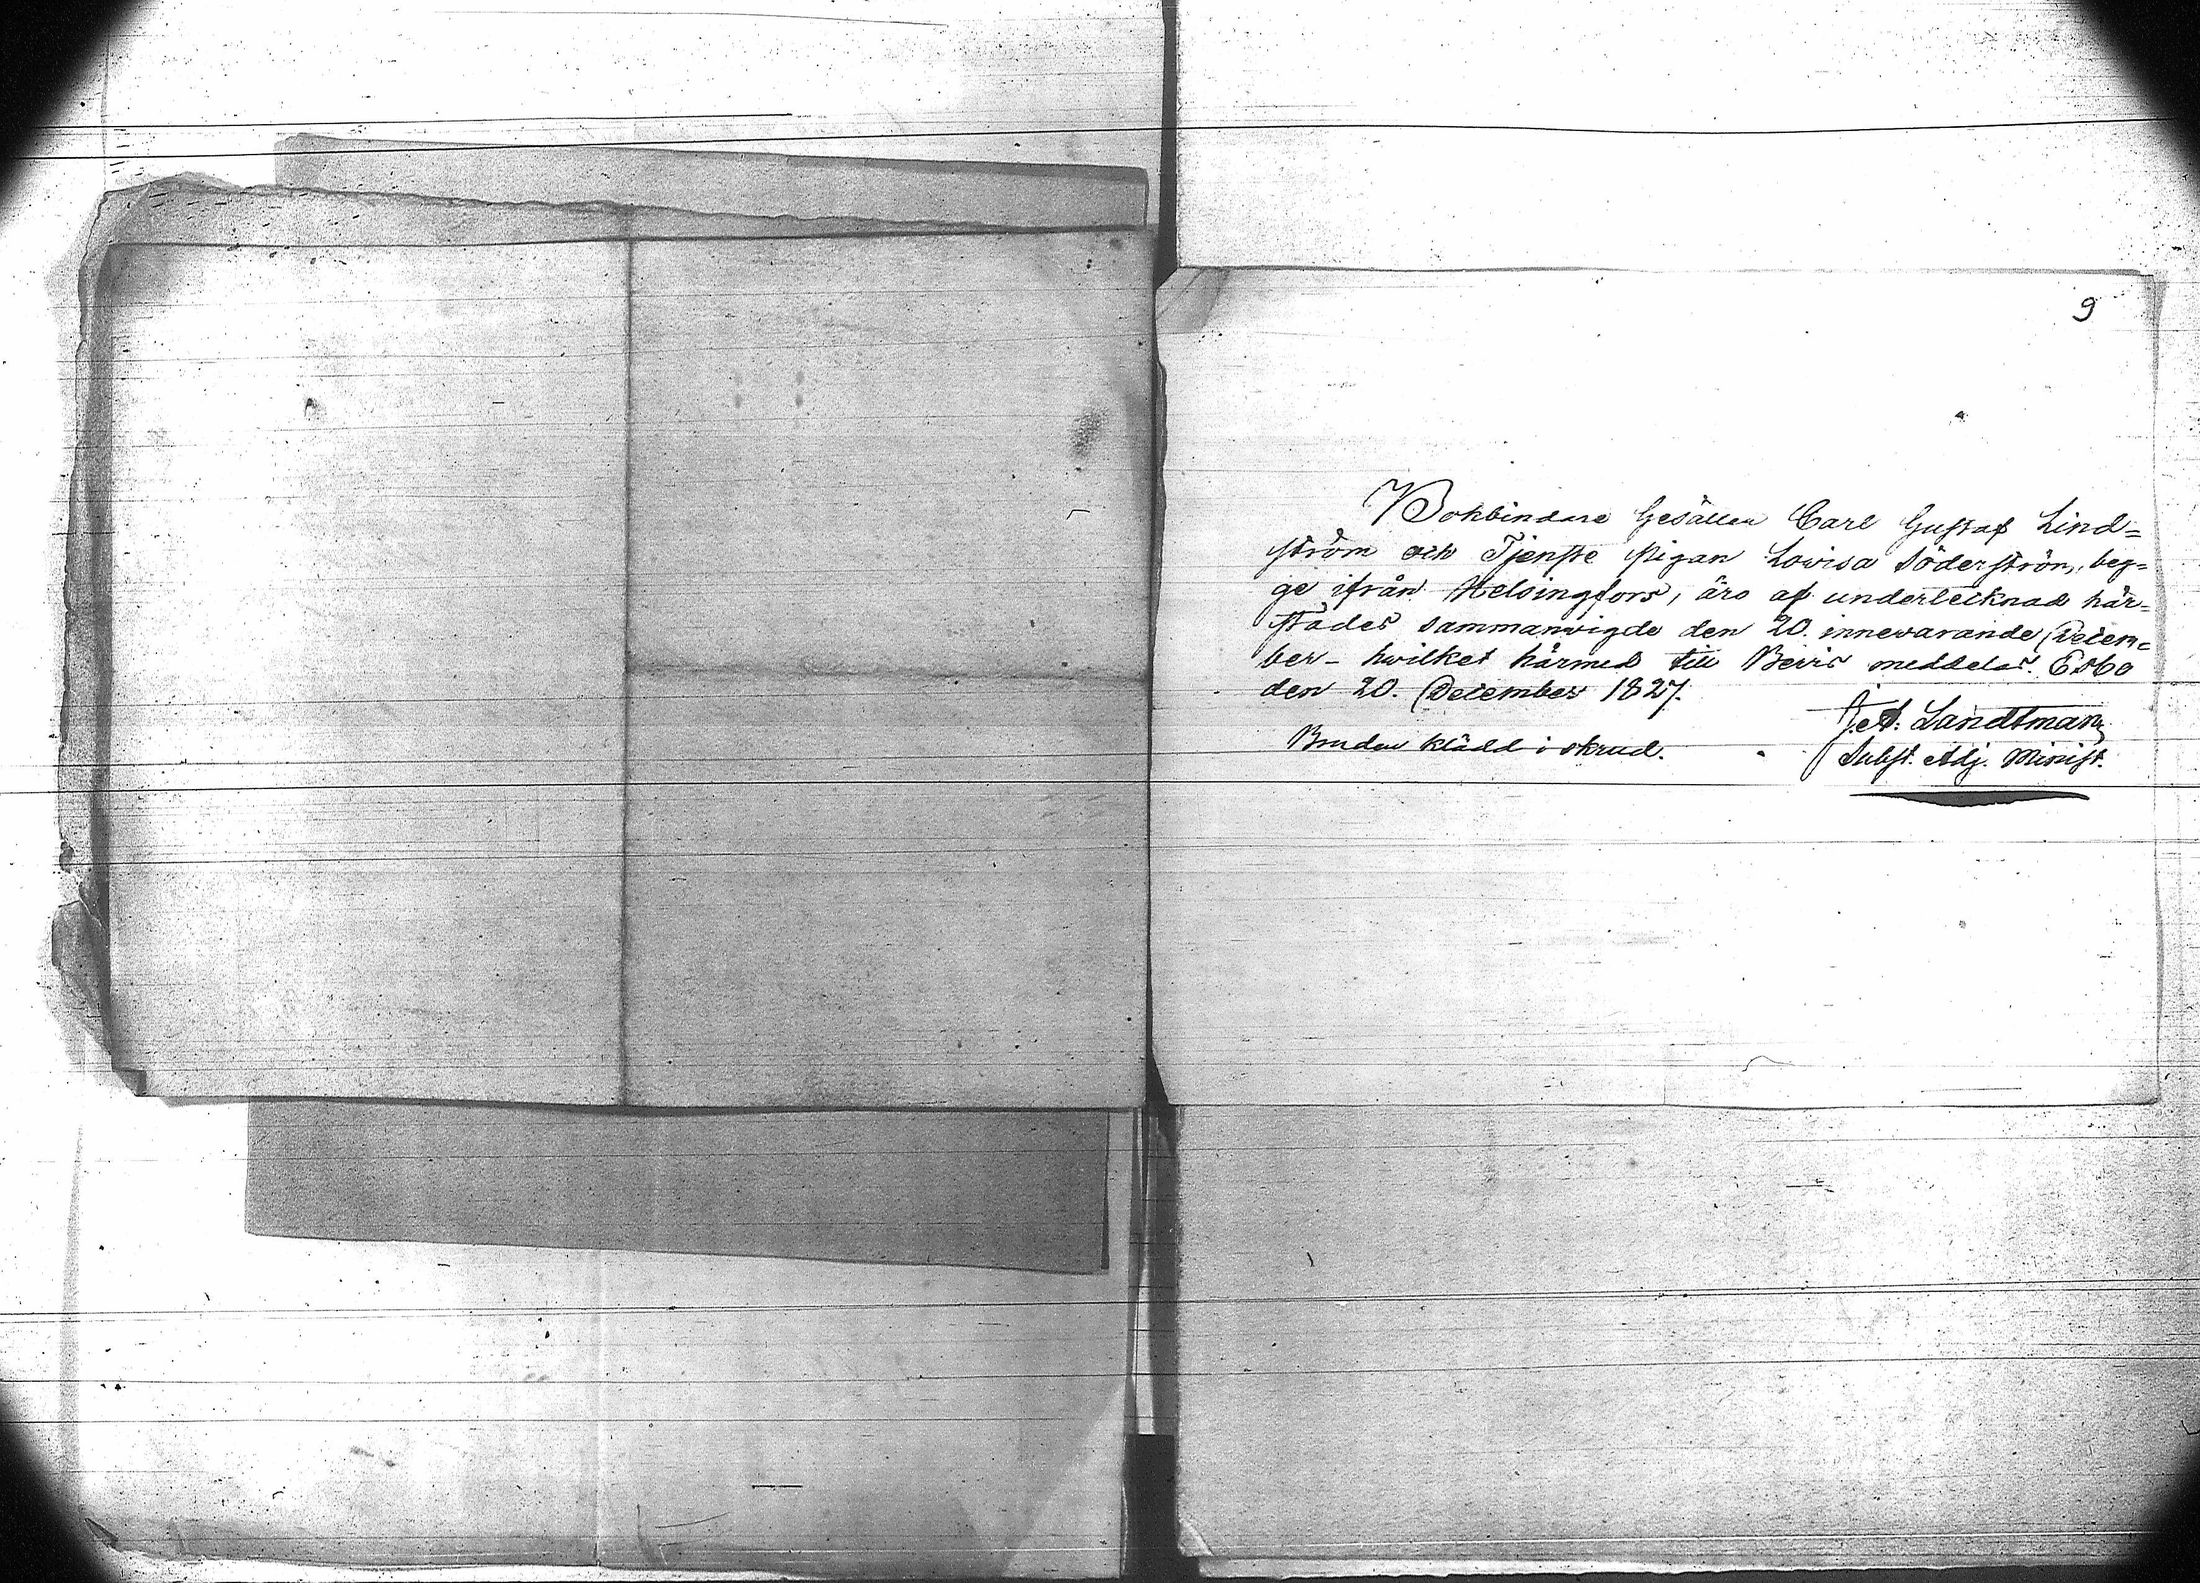 9
Bokbindare Gesällen Carl Gustaf Lind=
ström och Tjenste pigan Lovisa Söderström, beg=
ge ifrån Helsingfors, äro af undertecknad här=
städes sammanvigde den 20. innevarande Decem=
ber – hvilket härmed till Bevis meddelas. Esbo
den 20. December 1827.
Landtman
Bruden klädd i skrud.
Subst. Adj. Minist.